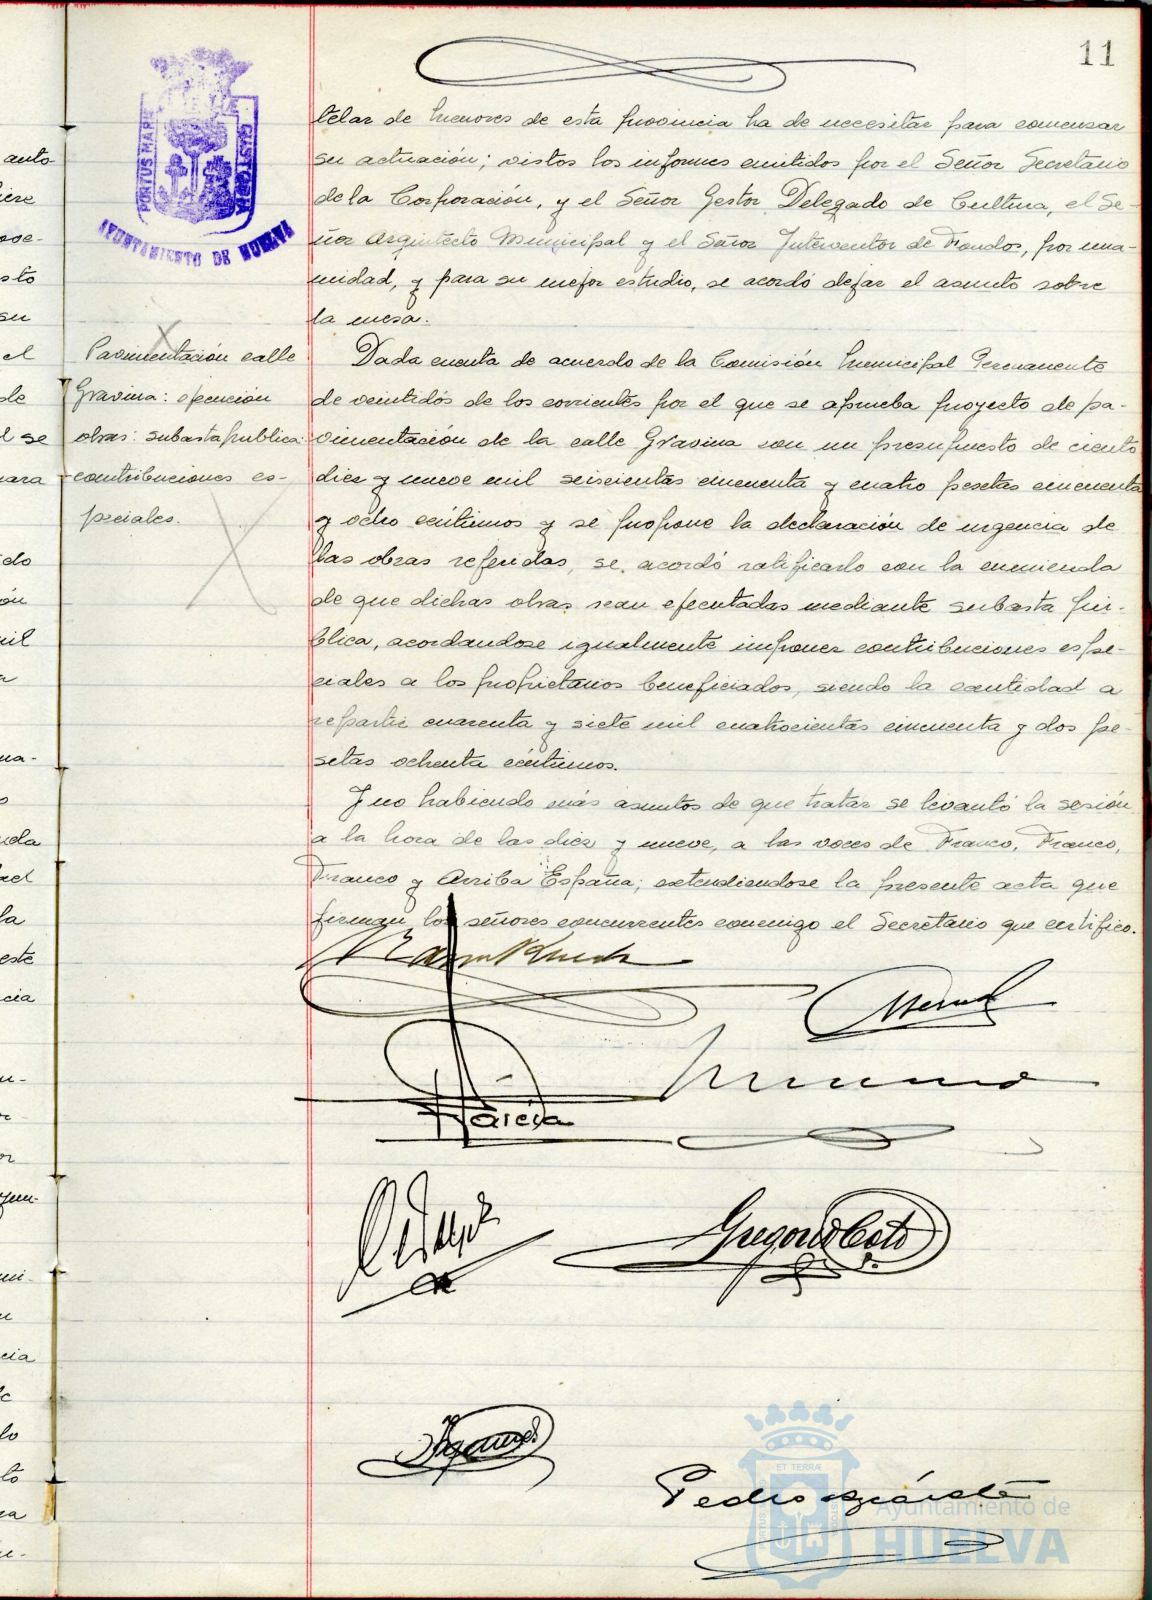 11
PORTUS MARIS
CUSTODIA
AYUNTAMIENTO DE HUELVA
telar de menores de esta provincia ha de necesitar para comenzar
su actuación; vistos los informes emitidos por el Señor Secretario
de la Corporación, y el Señor Gestor Delegado de Cultura, el Se-
ñor Arquitecto Municipal y el Señor Interventor de Fondos, por una-
nimidad, y para su mejor estudio, se acordó dejar el asunto sobre
la mesa.
Pavimentación calle
Gravina: ejecución
obras: subasta publica:
contribuciones es-
peciales.
Dada cuenta de acuerdo de la Comisión Municipal Permanente
de veintidós de los corrientes por el que se aprueba proyecto de pa-
vimentación de la calle Gravina con un presupuesto de ciento
diez y nueve mil seiscientas cincuenta y cuatro pesetas cincuenta
y ocho céntimos y se propone la declaración de urgencia de
las obras referidas, se acordó ratificarlo con la enmienda
de que dichas obras sean ejecutadas mediante subasta pú-
blica, acordandose igualmente imponer contribuciones espe-
ciales a los propietarios beneficiados, siendo la cantidad a
repartir cuarenta y siete mil cuatrocientas cincuenta y dos pe-
setas ochenta céntimos.
Y no habiendo más asuntos de que tratar se levantó la sesión
a la hora de las diez y nueve, a las voces de Franco, Franco,
Franco y Arriba España; extendiendose la presente acta que
firman los señores concurrentes conmigo el Secretario que certifico.
García
Gregorio Coto
Pedro
ET TERRÆ
Ayuntamiento de
HUELVA